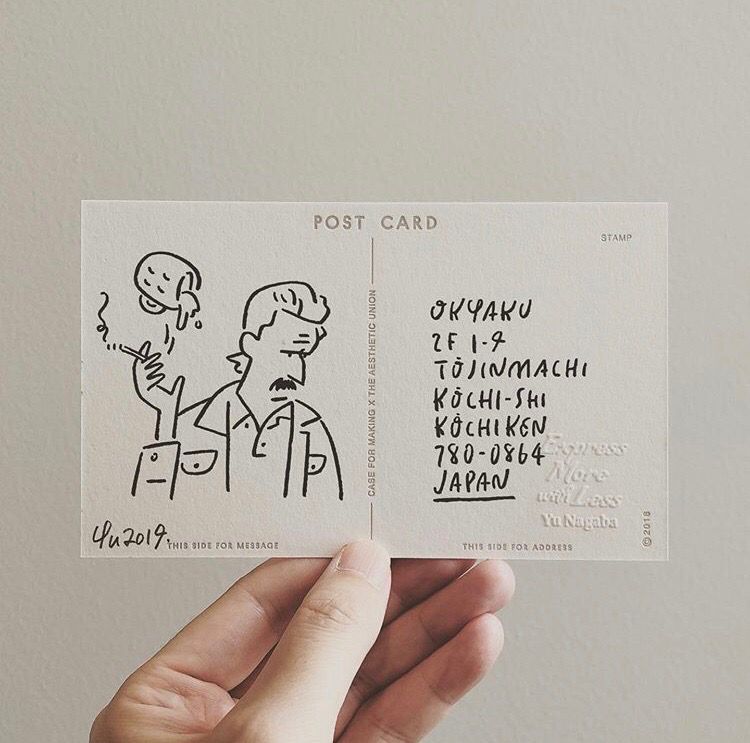 POST CARD
STAMP
CASE FOR MAKING X THE AESTHETIC UNION
OKYAKU
2F 1-9
TŌJINMACHI
KŌCHI-SHI
KŌCHI KEN
780-0864
JAPAN
Express
More
with Less
Yu Nagaba
©2018
Yu 2019.
THIS SIDE FOR MESSAGE
THIS SIDE FOR ADDRESS